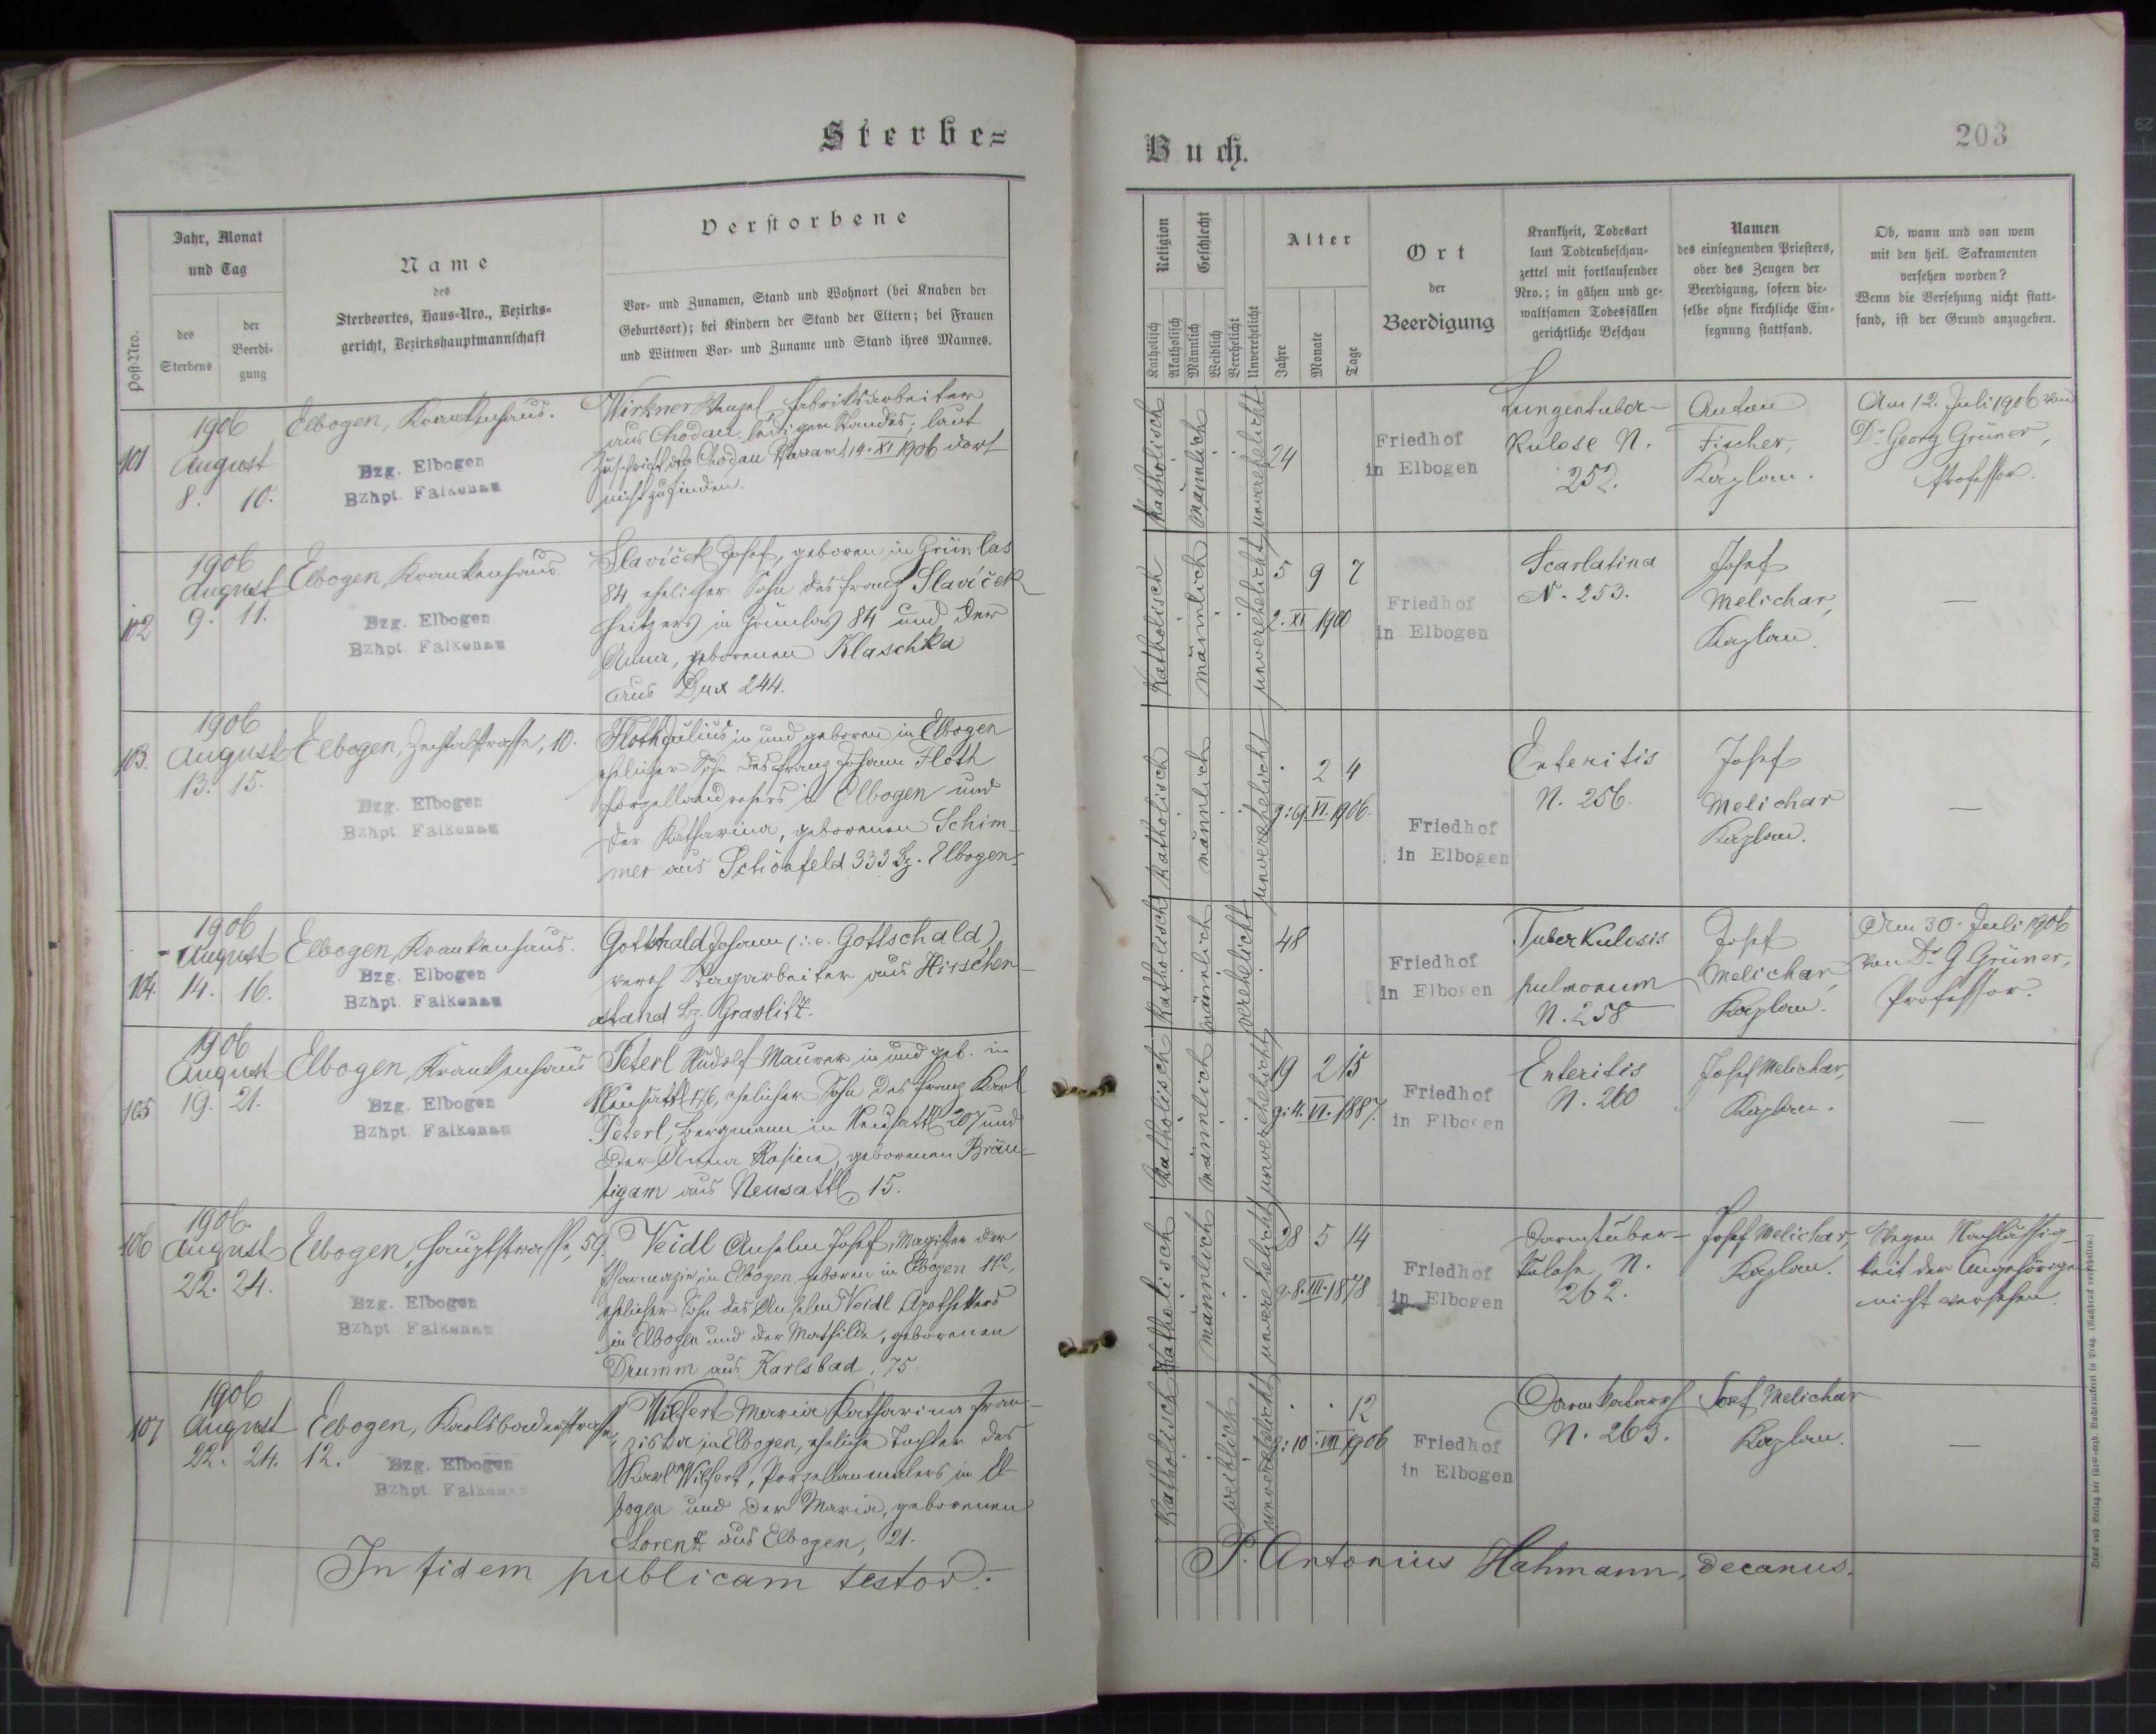 Sterbe=
Buch.
203
Post-Nro.
Jahr, Monat
und Tag
des
Sterbens
der
Beerdi-
gung
Name
des
Sterbeortes, Haus-Nro., Bezirks-
gericht, Bezirkshauptmannschaft
Verstorbene
Vor- und Zunamen, Stand und Wohnort (bei Knaben der
Geburtsort); bei Kindern der Stand der Eltern; bei Frauen
und Wittwen Vor- und Zuname und Stand ihres Mannes.
Religion
Katholisch
Akatholisch
Geschlecht
Männlich
Weiblich
Verehelicht
Unverehelicht
Alter
Jahre
Monate
Tage
Ort
der
Beerdigung
Krankheit, Todesart
laut Todtenbeschau-
zettel mit fortlaufender
Nro.; in gähen und ge-
waltsamen Todesfällen
gerichtliche Beschau
Namen
des einsegnenden Priesters,
oder des Zeugen der
Beerdigung, sofern die-
selbe ohne kirchliche Ein-
segnung stattfand.
Ob, wann und von wem
mit den heil. Sakramenten
versehen worden?
Wenn die Versehung nicht statt-
fand, ist der Grund anzugeben.
101
1906
August
8. 10.
Elbogen, Krankenhaus.
Bzg. Elbogen
Bzhpt. Falkenau
Wirkner Wenzel, Fabriksarbeiter
aus Chodau, ledigen Standes; laut
Zuschrift des Chodau Pfarramt 19. XI 1906 dort
nicht zu finden.
katholisch
männlich
unverehelicht
24
Friedhof
in Elbogen
Lungentuber-
kulose N.
252.
Anton
Fischer,
Kaplan.
Am 12. Juli 1906 von
Dr. Georg Grüner,
Professor.
102
1906
August
9. 11.
Elbogen, Krankenhaus
Bzg. Elbogen
Bzhpt. Falkenau
Slavíček Josef, geboren in Grünlas
84 ehelicher Sohn des Franz Slavíček
Heitzers in Grünlas 84 und der
Anna, geborenen Klaschka
aus Dux 244.
katholisch
männlich
unverehelicht
5 9 7
2. XI 1900
Friedhof
in Elbogen
Scarlatina
N. 253.
Josef
Melichar,
Kaplan.
—
103.
1906
August
13. 15.
Elbogen, Zechtalstrasse, 10.
Bzg. Elbogen
Bzhpt. Falkenau
Floth Julius in und geboren in Elbogen
ehelicher Sohn des Franz Johann Floth
Porzellandrehers in Elbogen und
der Katharina, geborenen Schim-
mer aus Schönfeld 333 Bz. Elbogen.
katholisch
männlich
unverehelicht
. 2 4
g: 9. VI. 1906.
Friedhof
in Elbogen
Enteritis
N. 256.
Josef
Melichar
Kaplan.
—
104.
1906
August
14. 16.
Elbogen, Krankenhaus.
Bzg. Elbogen
Bzhpt. Falkenau
Gotthald Johann (i. e. Gottschald)
vereh. Tagarbeiter aus Hirschen-
stand Bz. Graslitz.
katholisch
männlich
verehelicht
48
Friedhof
in Elbogen
Tuberkulosis
pulmonum
N. 258
Josef
Melichar,
Kaplan.
Am 30. Juli 1906
von Dr. G Grüner,
Professor.
105
1906
August
19. 21.
Elbogen, Krankenhaus
Bzg. Elbogen
Bzhpt. Falkenau
Peterl Rudolf Maurer in und geb. in
Neusattl 176, ehelicher Sohn des Franz Karl
Peterl, Bergmann in Neusattl 207 und
der Anna Rosina, geborenen Bräu-
tigam aus Neusattl, 15.
katholisch
männlich
unverehelicht
19 2 15
g: 4. VI. 1887.
Friedhof
in Elbogen
Enteritis
N. 260
Josef Melichar,
Kaplan.
—
106
1906.
August
22. 24.
Elbogen, Hauptstrasse, 59.
Bzg. Elbogen
Bzhpt. Falkenau
Veidl Anselm Josef, Magister der
Pharmazie in Elbogen, geboren in Elbogen 112,
ehelicher Sohn des Anselm Veidl Apothekers
in Elbogen und der Mathilde, geborenen
Drumm aus Karlsbad, 75.
katholisch
männlich
unverehelicht
28 5 14
g. 8. III. 1878
Friedhof
in Elbogen
Darmtuber-
kulose N.
262.
Josef Melichar,
Kaplan.
Wegen Nachlässig-
keit der Angehörigen
nicht versehen.
107
1906
August
22. 24.
Elbogen, Karlsbaderstrasse,
12.
Bzg. Elbogen
Bzhpt. Falkenau
Wilfert Maria Katharina Fran-
ziska in Elbogen, eheliche Tochter des
Karl Wilfert, Porzellanmalers in El-
bogen und der Maria, geborenen
Lorenz aus Elbogen, 21.
katholisch
weiblich
unverehelicht
. . 12
g: 10. VIII 1906
Friedhof
in Elbogen
Darmkatarrh
N. 263.
Josef Melichar
Kaplan.
—
In fidem publicam testor:
P. Antonius Hahmann, decanus.